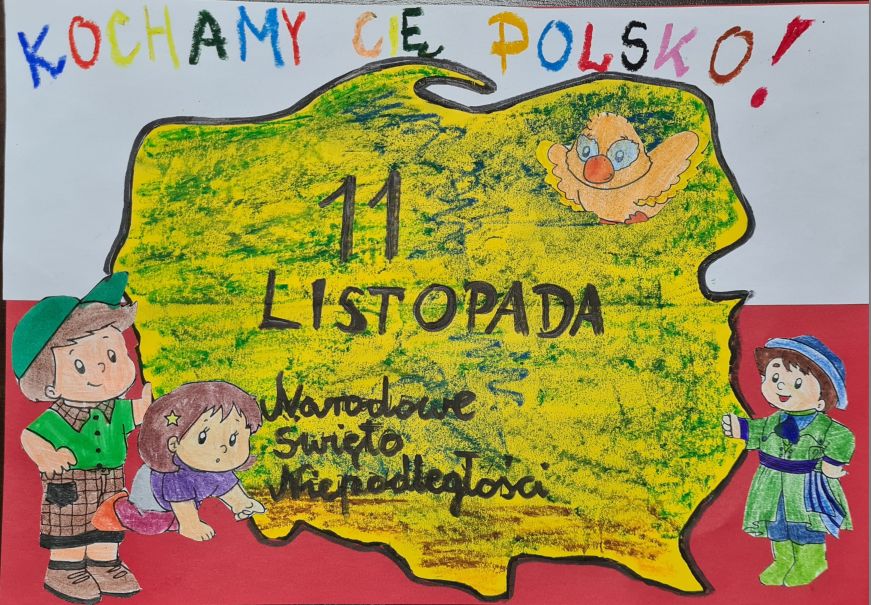 KOCHAMY CIĘ POLSKO!
11
LISTOPADA
Narodowe
Święto
Niepodległości